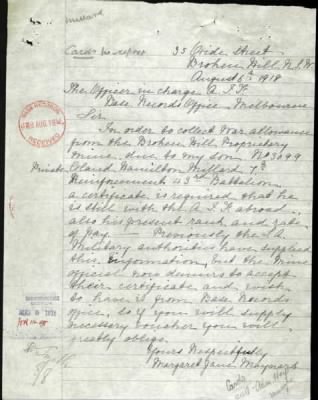 Millard
Cards to report
35 Oxide Street
Broken Hill N.S.W
August 6th 1918
The Officer in charge A.I.F.
Base Records Office, Melbourne
Sir
In order to collect War allowance
from the Broken Hill Proprietary
mine, due to my son No 3099
Private Eland Hamilton Millard 7th
Reinforcements 43rd Battalion
a certificate is required that he
is still with the A.I.F. abroad
also his present rank and rate
of Pay. Previously the S.A.
Military authorities have supplied
this information, but the mine
official now demurs to accept
their certificate and wish
to have it from Base Records
office, so if you will supply
necessary voucher you will
greatly oblige.
Yours Respectfully
Margaret Jane
RECEIVED
8/8
Cards